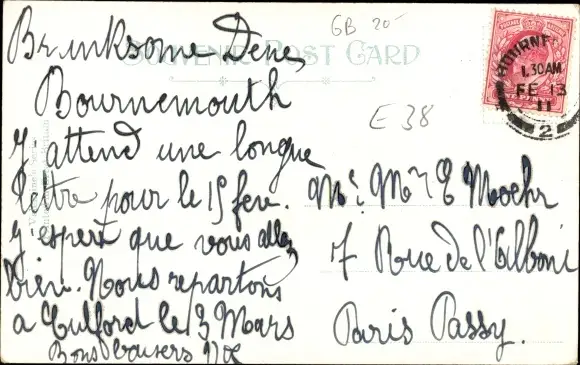 Branksome Dene,
Bournemouth
J'attend une longue
lettre pour le 15 fev.
J'espert que vous allez
bien. Nous repartons
a Culford le 3 Mars
Bons baisers
GB 20-
SOUVENIR POST CARD
E 38
BOURNE
1.30AM
FE 13
11
2
Mr. Mme E Moehr
7 Rue de l'Alboni
Paris Passy.